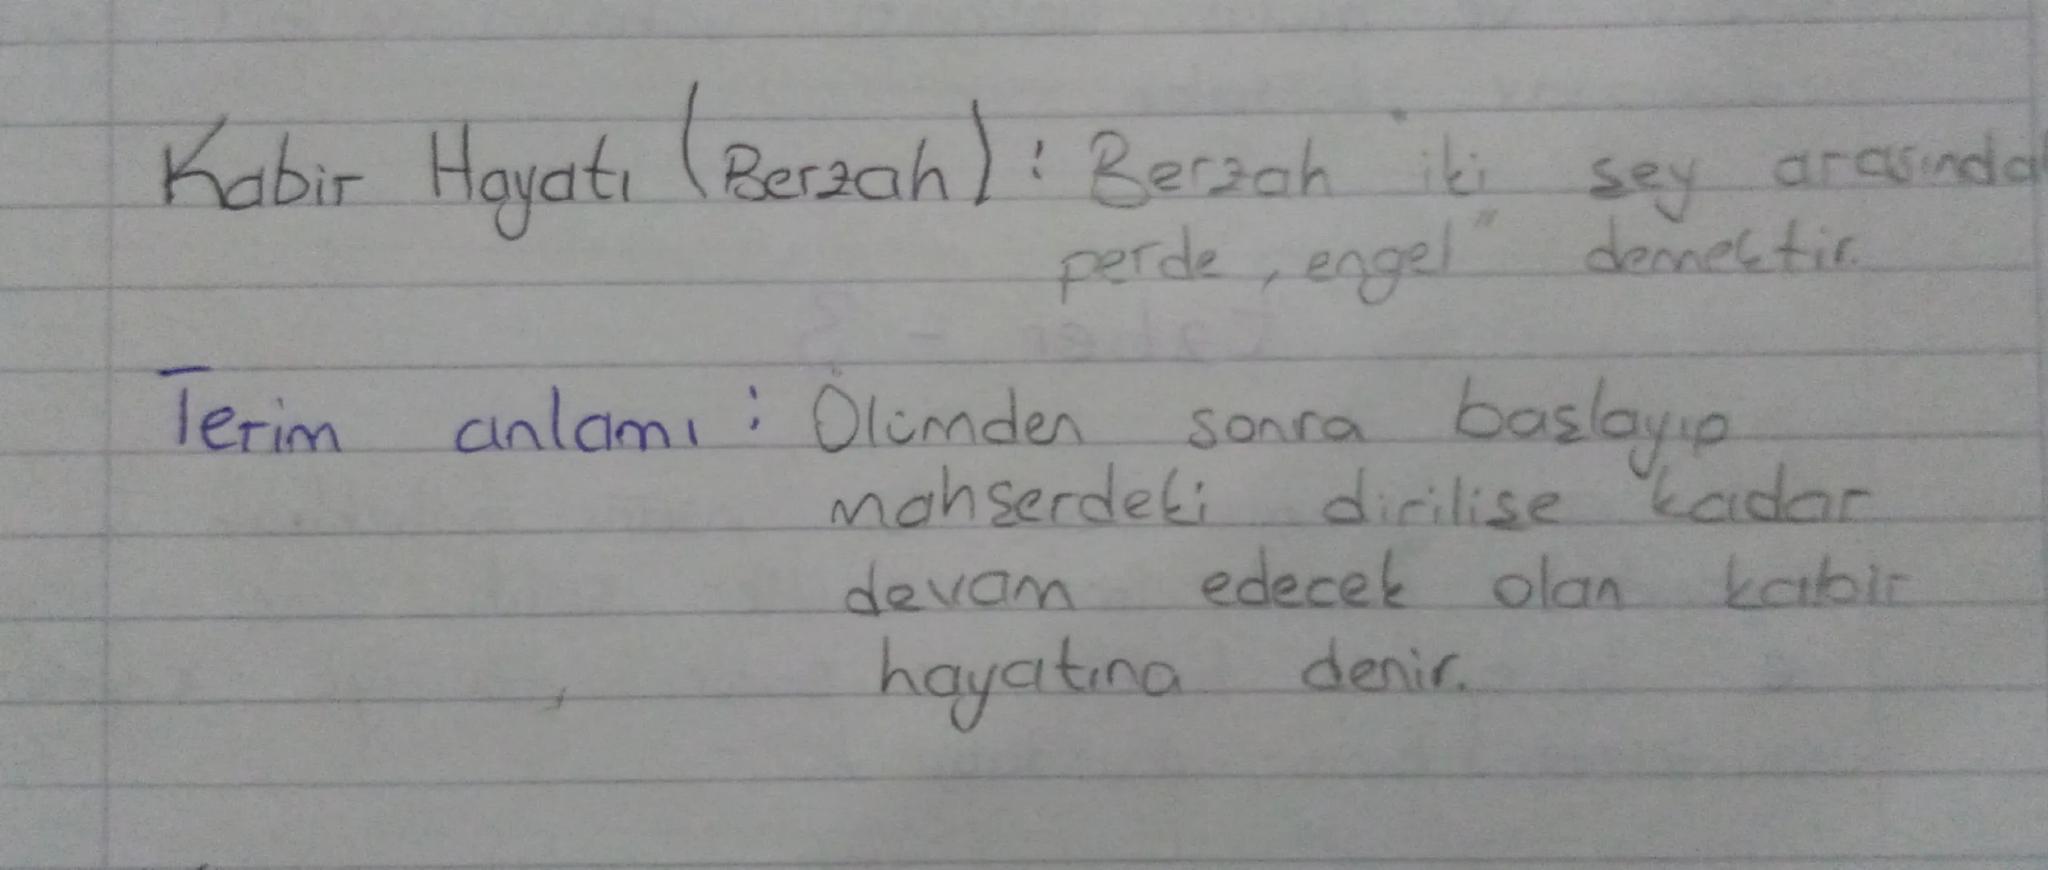 Kabir Hayatı (Berzah) : Berzah iki sey arasında
perde, engel" demektir.
Terim anlamı : Ölümden sonra başlayıp
mahşerdeki dirilişe kadar
devam edecek olan kabir
hayatına denir.